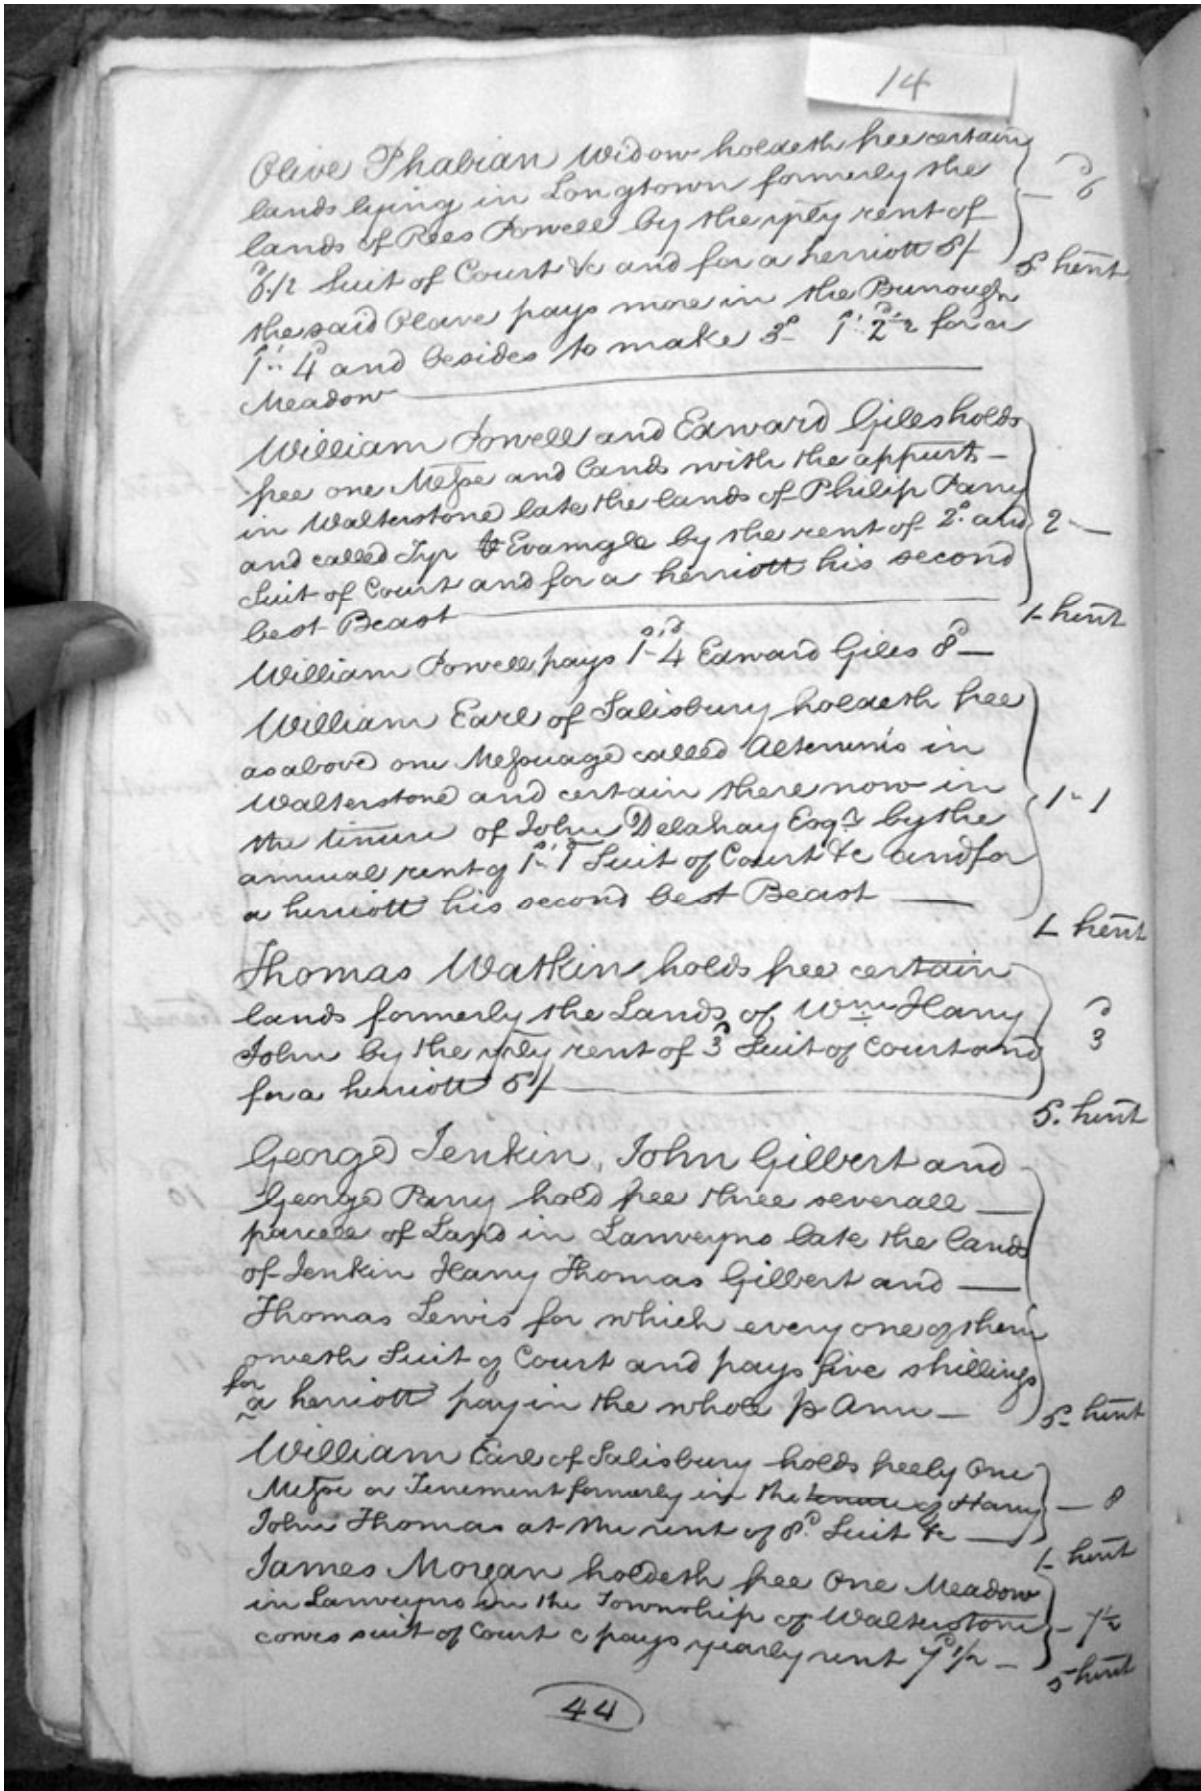 14
Olive Phabian Widow holdeth free certain
lands lying in Longtown formerly the
lands of Rees Powell by the yrly rent of — 6d
6d 1/2 Suit of Court &c and for a herriott 5/ 5 herrt
the said Olave pays more in the Burrough
1s:4d and besides to make 3s 1s:2d½ for a
Meadow
William Powell and Edward Giles holds
free one Messe and Lands with the appurts
in Walterstone late the lands of Philip Parry
and called Tyr Evamgle by the rent of 2s. and 2 —
Suit of Court and for a herriott his second
best Beast 1 herrt
William Powell pays 1s-4d Edward Giles 8d —
William Earl of Salisbury holdeth free
as above one Messuage called Alterinnis in
Walterstone and certain there now in 1 - 1
the tenure of John Delahay Esqr by the
annual rent of 1s-1d Suit of Court &c and for
a herriott his second best Beast —
1 herrt
Thomas Watkin holds free certain
lands formerly the Lands of Wm Harry
John by the yrly rent of 3d Suit of Court and 3d
for a herriott 5/
5. herrt
George Jenkin, John Gilbert and
George Parry hold free three severall —
parcell of Land in Lanveyno late the lands
of Jenkin Harry Thomas Gilbert and —
Thomas Lewis for which every one of them
oweth Suit of Court and pays five shillings
for
a herriott pay in the whole p Ann — 5- herrt
William Earl of Salisbury holds freely One
Messe or Tenement formerly in the tenure of Harry — 8
John Thomas at the rent of 8d. Suit &c —
1- herrt
James Morgan holdeth free One Meadow
in Lanveyno in the Township of Walterstone — 7½
owes suit of Court c pays yearly rent 7d 1/2 —
5 herrt
44